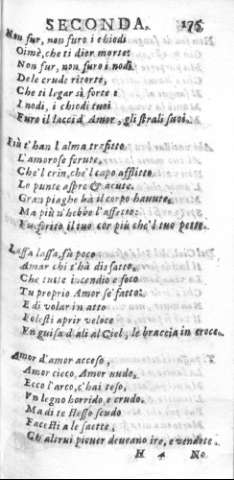 SECONDA. 175
Non fur, non furo i chiodi
Oimè, che ti dier morte:
Non fur, non furo i nodi
Dele crude ritorte,
Che ti legar sì forte
I nodi, i chiodi tuoi
Furo il lacci d'Amor, gli strali suoi.
Più t'han l'alma trafitto
L'amorose ferute,
Che'l crin, che'l capo afflitto
Le punte aspre & acute.
Gran piaghe hà il corpo hauute,
Ma più n'hebbe l'affetto:
Fù ferito il tuo cor più che'l tuo petto.
Lassa lassa, fù poco
Amar chi t'hà disfatto,
Che tutto incendio e foco
Tu proprio Amor se' fatto:
E di volar in atto
Volesti aprir veloce
En guisa d'ali al Ciel, le braccia in croce.
Amor d'amor acceso,
Amor cieco, Amor nudo,
Ecco l'arco, c'hai teso,
Vn legno horrido, e crudo.
Ma di te stesso scudo
Facesti a le saette,
Ch'altrui piouer deueano ire, e vendette.
H 4 No